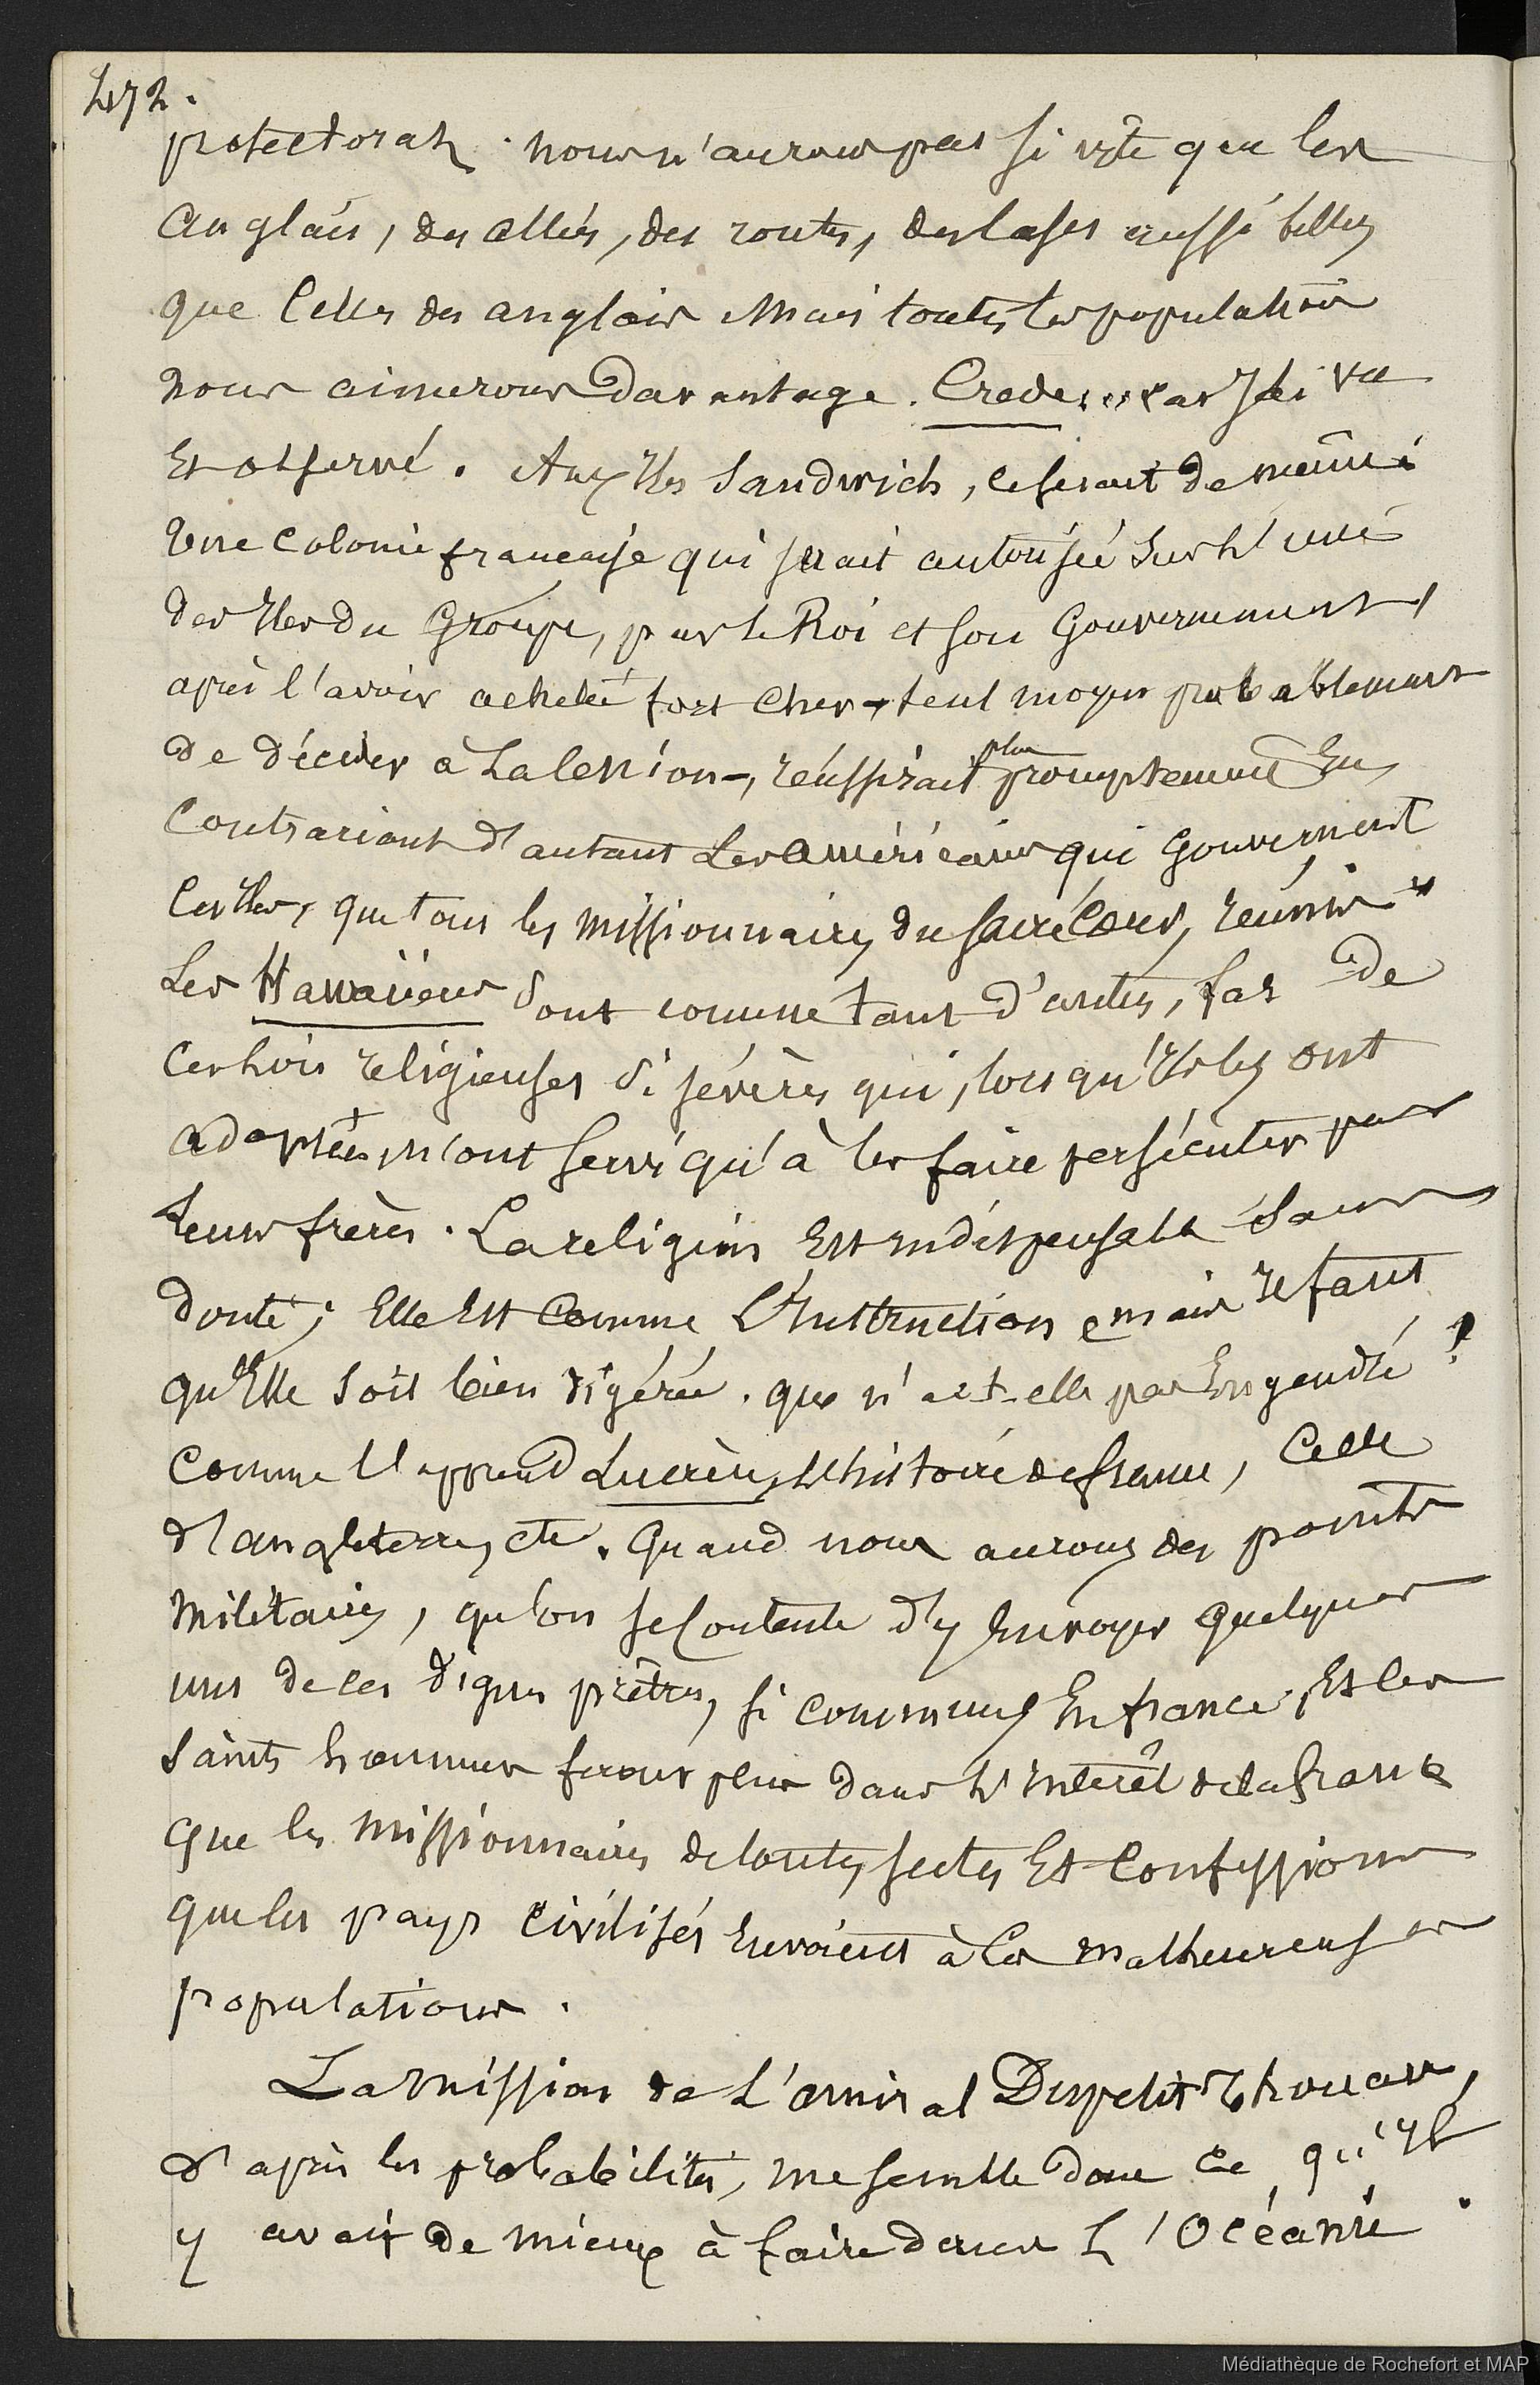 472.
protectorat. nous n'aurons pas si vite que les
anglais, des allées, des routes, des cases aussi belles
que celles des anglais mais toutes les populations
nous aimerons davantage. Crede... car J'ai vu
Et observé. Aux Iles Sandwich, ce serait de même
Une Colonie française qui serait autorisée sur l'une
des Iles du Groupe, par le Roi et son Gouvernement,
après l'avoir acheté fort cher - seul moyen probablement
de décider à la cession -, réussirait plus promptement En
contrariant d'autant les américains qui Gouvernent
ces Iles, que tous les missionnaires du sacré Cœur, réunis
Les Hawaïiens sont comme tant d'autres, las de
ces Lois religieuses si sévères qui, lorsqu'Ils les ont
adoptées, n'ont servi qu'à les faire persécuter par
leurs frères. La religion Est indispensable sans
doute; Elle Est Comme L'Instruction, mais Il faut
qu'Elle soit bien digérée. que n'a-t-elle pas Engendré?
Comme l'apprend Lucrèce, L'histoire de france, Celle
d'angleterre, etc. Quand nous aurons des points
militaires, qu'on se contente d'y Envoyer quelques
uns de ces dignes prêtres, si communs En france, Et les
saints hommes feront plus dans L'Intérêt de la france
que les missionnaires de toutes sectes Et Confessions
que les pays civilisés Envoient à ces malheureuses
populations.
La mission de L'amiral Dupetit Thouars,
d'après les probabilités, me semble donc ce qu'Il
y avait de mieux à faire dans L'Océanie.
Médiathèque de Rochefort et MAP